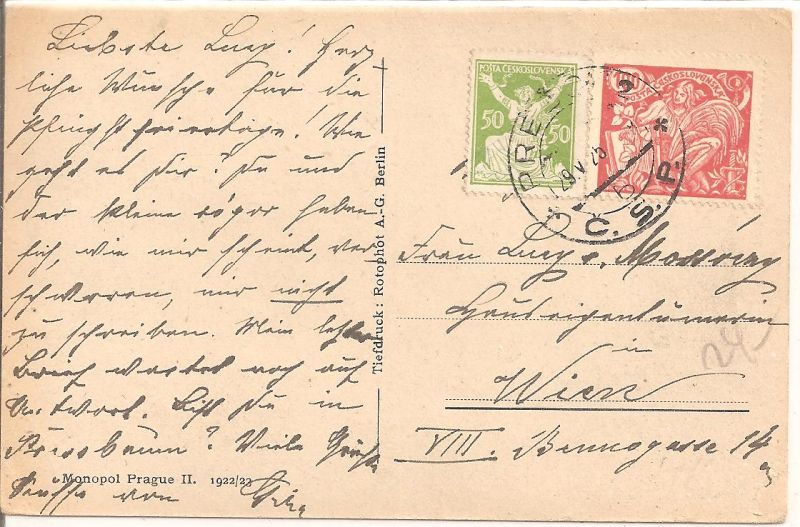 Liebste Lucy! Herz-
liche Wünsche für die
Pfingstfeiertage! Wie
geht es Dir? Du und
der kleine haben
sich, wie mir scheint, ver-
schworen, mir nicht
zu schreiben. Mein letzter
Brief wartet noch auf
Antwort. Bist Du in
Pressbaum? Viele Grüße
von
Monopol Prague II. 1922/23
Tiefdruck: Rotophot A.-G. Berlin
POŠTA ČESKOSLOVENSKÁ
50 50
POŠTA ČESKOSLOVENSKÁ
29.V.23
Č.S.R.
Frau Lucy v.
Hauseigentümerin
in
Wien
VIII. Bennogasse
24